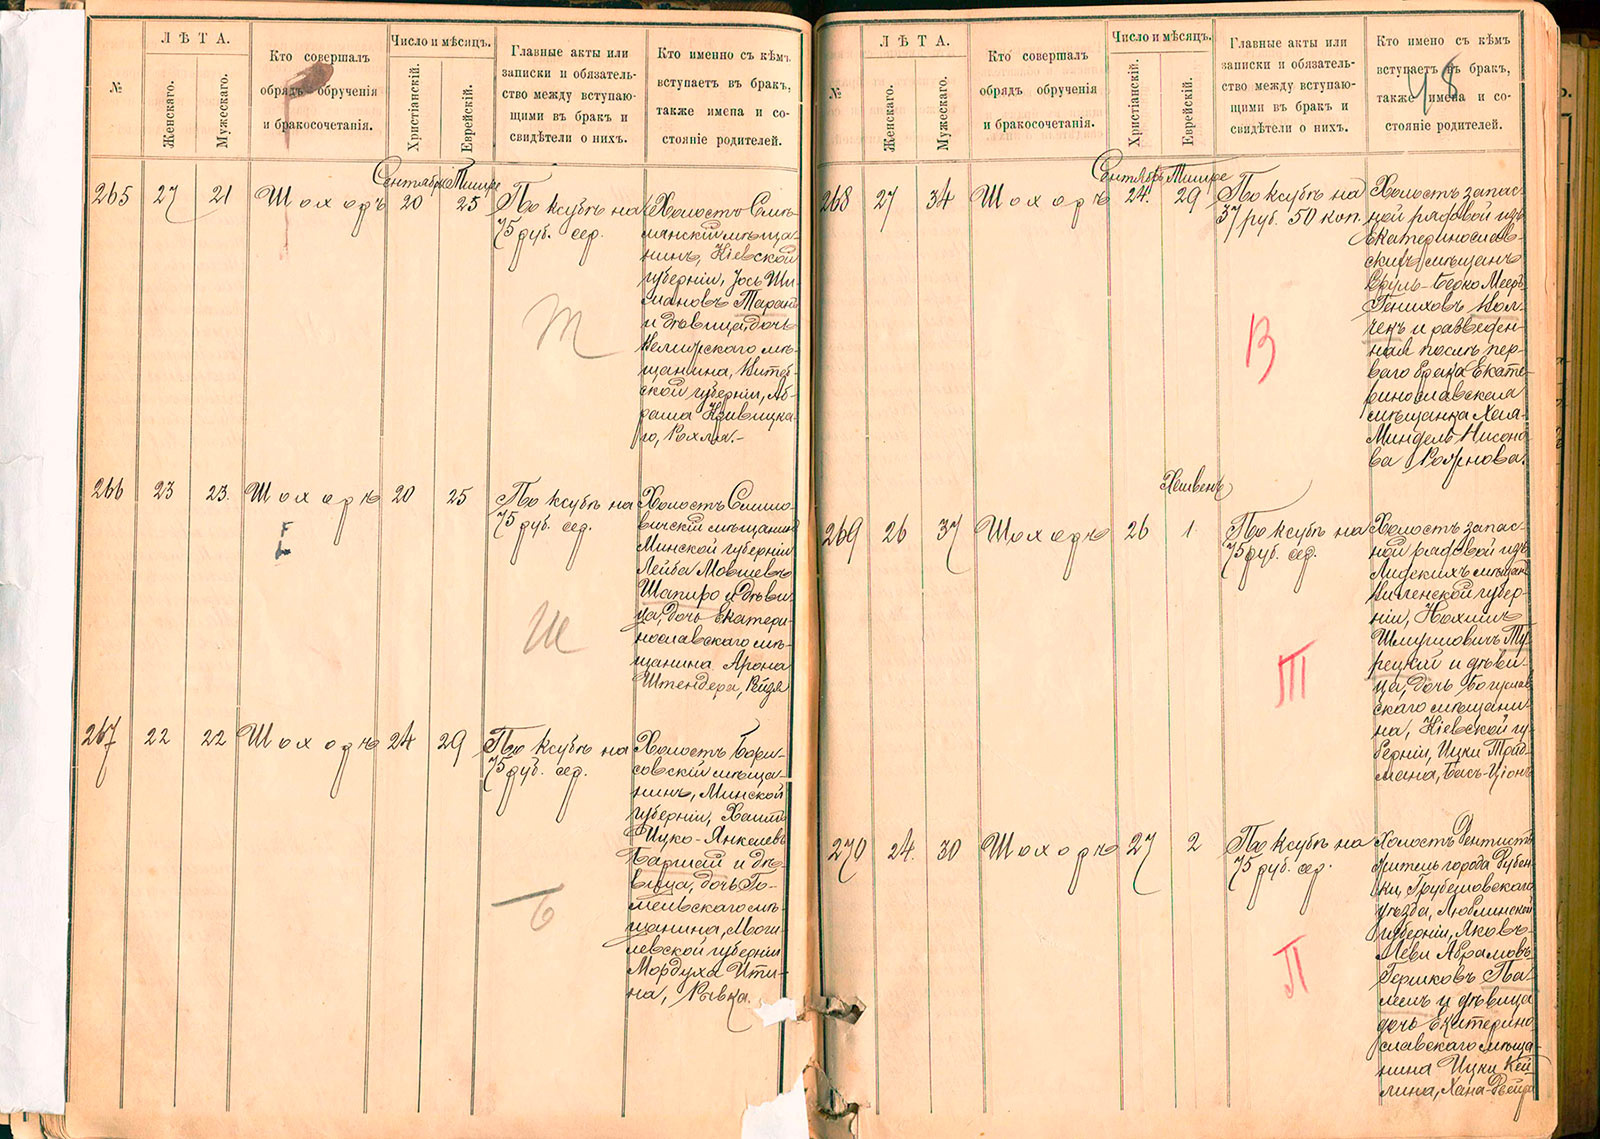 №
ЛѢТА.
Женскаго.
Мужескаго.
Кто совершалъ
обрядъ обрученія
и бракосочетанія.
Число и мѣсяцъ.
Христіанскій.
Еврейскій.
Главные акты или
записки и обязатель-
ство между вступаю-
щими въ бракъ и
свидѣтели о нихъ.
Кто именно съ кѣмъ
вступаетъ въ бракъ,
также имена и со-
стояніе родителей.
Сентябрь Тишре
265 27 21 Шохоръ 20 25
По ксубѣ на
75 руб. сер.
Холостъ Смѣ-
лянскій мѣща-
нинъ, Кіевской
губерніи, Іось Ши-
мановъ Таран
и дѣвица, дочь
мѣ-
щанина, Витеб-
ской губерніи, Аб-
рама Кривицка-
го, Рохля.-
Т
266 23 23. Шохоръ 20 25
По ксубѣ на
75 руб. сер.
Холостъ Смило-
вичскій мѣщанинъ
Минской губерніи
Лейба Мовшевъ
Шапиро и дѣви-
ца, дочь Екатери-
нославскаго мѣ-
щанина Арона
Штендера, Рейзя
Ш
267 22 22 Шохоръ 24 29
По ксубѣ на
75 руб. сер.
Холостъ Бори-
совскій мѣща-
нинъ, Минской
губерніи, Хаимъ
Ицко-Янкелевъ
Баршай и дѣ-
вица, дочь Го-
мельскаго мѣ-
щанина, Моги-
левской губерніи
Мордуха Ити-
на, Рывка.
Б
48
№
ЛѢТА.
Женскаго.
Мужескаго.
Кто совершалъ
обрядъ обрученія
и бракосочетанія.
Число и мѣсяцъ.
Христіанскій.
Еврейскій.
Главные акты или
записки и обязатель-
ство между вступаю-
щими въ бракъ и
свидѣтели о нихъ.
Кто имено съ кѣмъ
вступаетъ въ бракъ,
также имена и со-
стояніе родителей.
Сентябрь Тишре
268 27 34 Шохоръ 24. 29
По ксубѣ на
37 руб. 50 коп.
Холостъ запас-
ной рядовой изъ
Екатеринослав-
скихъ мѣщанъ
Сруль-Берко Меер-
Гениховъ Вол-
ченъ и разведен-
ная послѣ пер-
ваго брака Екате-
ринославская
мѣщанка Хая-
Миндель Нисоно-
ва Рояънова.
В
Хешвенъ
269 26 37 Шохоръ 26 1.
По ксубѣ на
75 руб. сер.
Холостъ запас-
ной рядовой изъ
Лидскихъ мѣщанъ
Виленской губер-
ніи, Нохимъ
Шмуиловичъ Ту-
рецкій и дѣви-
ца, дочь Богуслав-
скаго мѣщани-
на, Кіевской гу-
берніи, Ицки Трой-
мана, Бась-Ціонъ
Т
270 24. 30 Шохоръ 27 2
По ксубѣ на
75 руб. сер.
Холостъ Дентистъ
житель города Дубен-
ки, Грубешовскаго
уѣзда, Люблинской
губерніи, Яковъ-
Леви Абрамовъ-
Гершковъ Па-
лемъ и дѣвица
дочь Екатерино-
славскаго мѣща-
нина Ицки Кей-
лина, Хана-Фейга
П